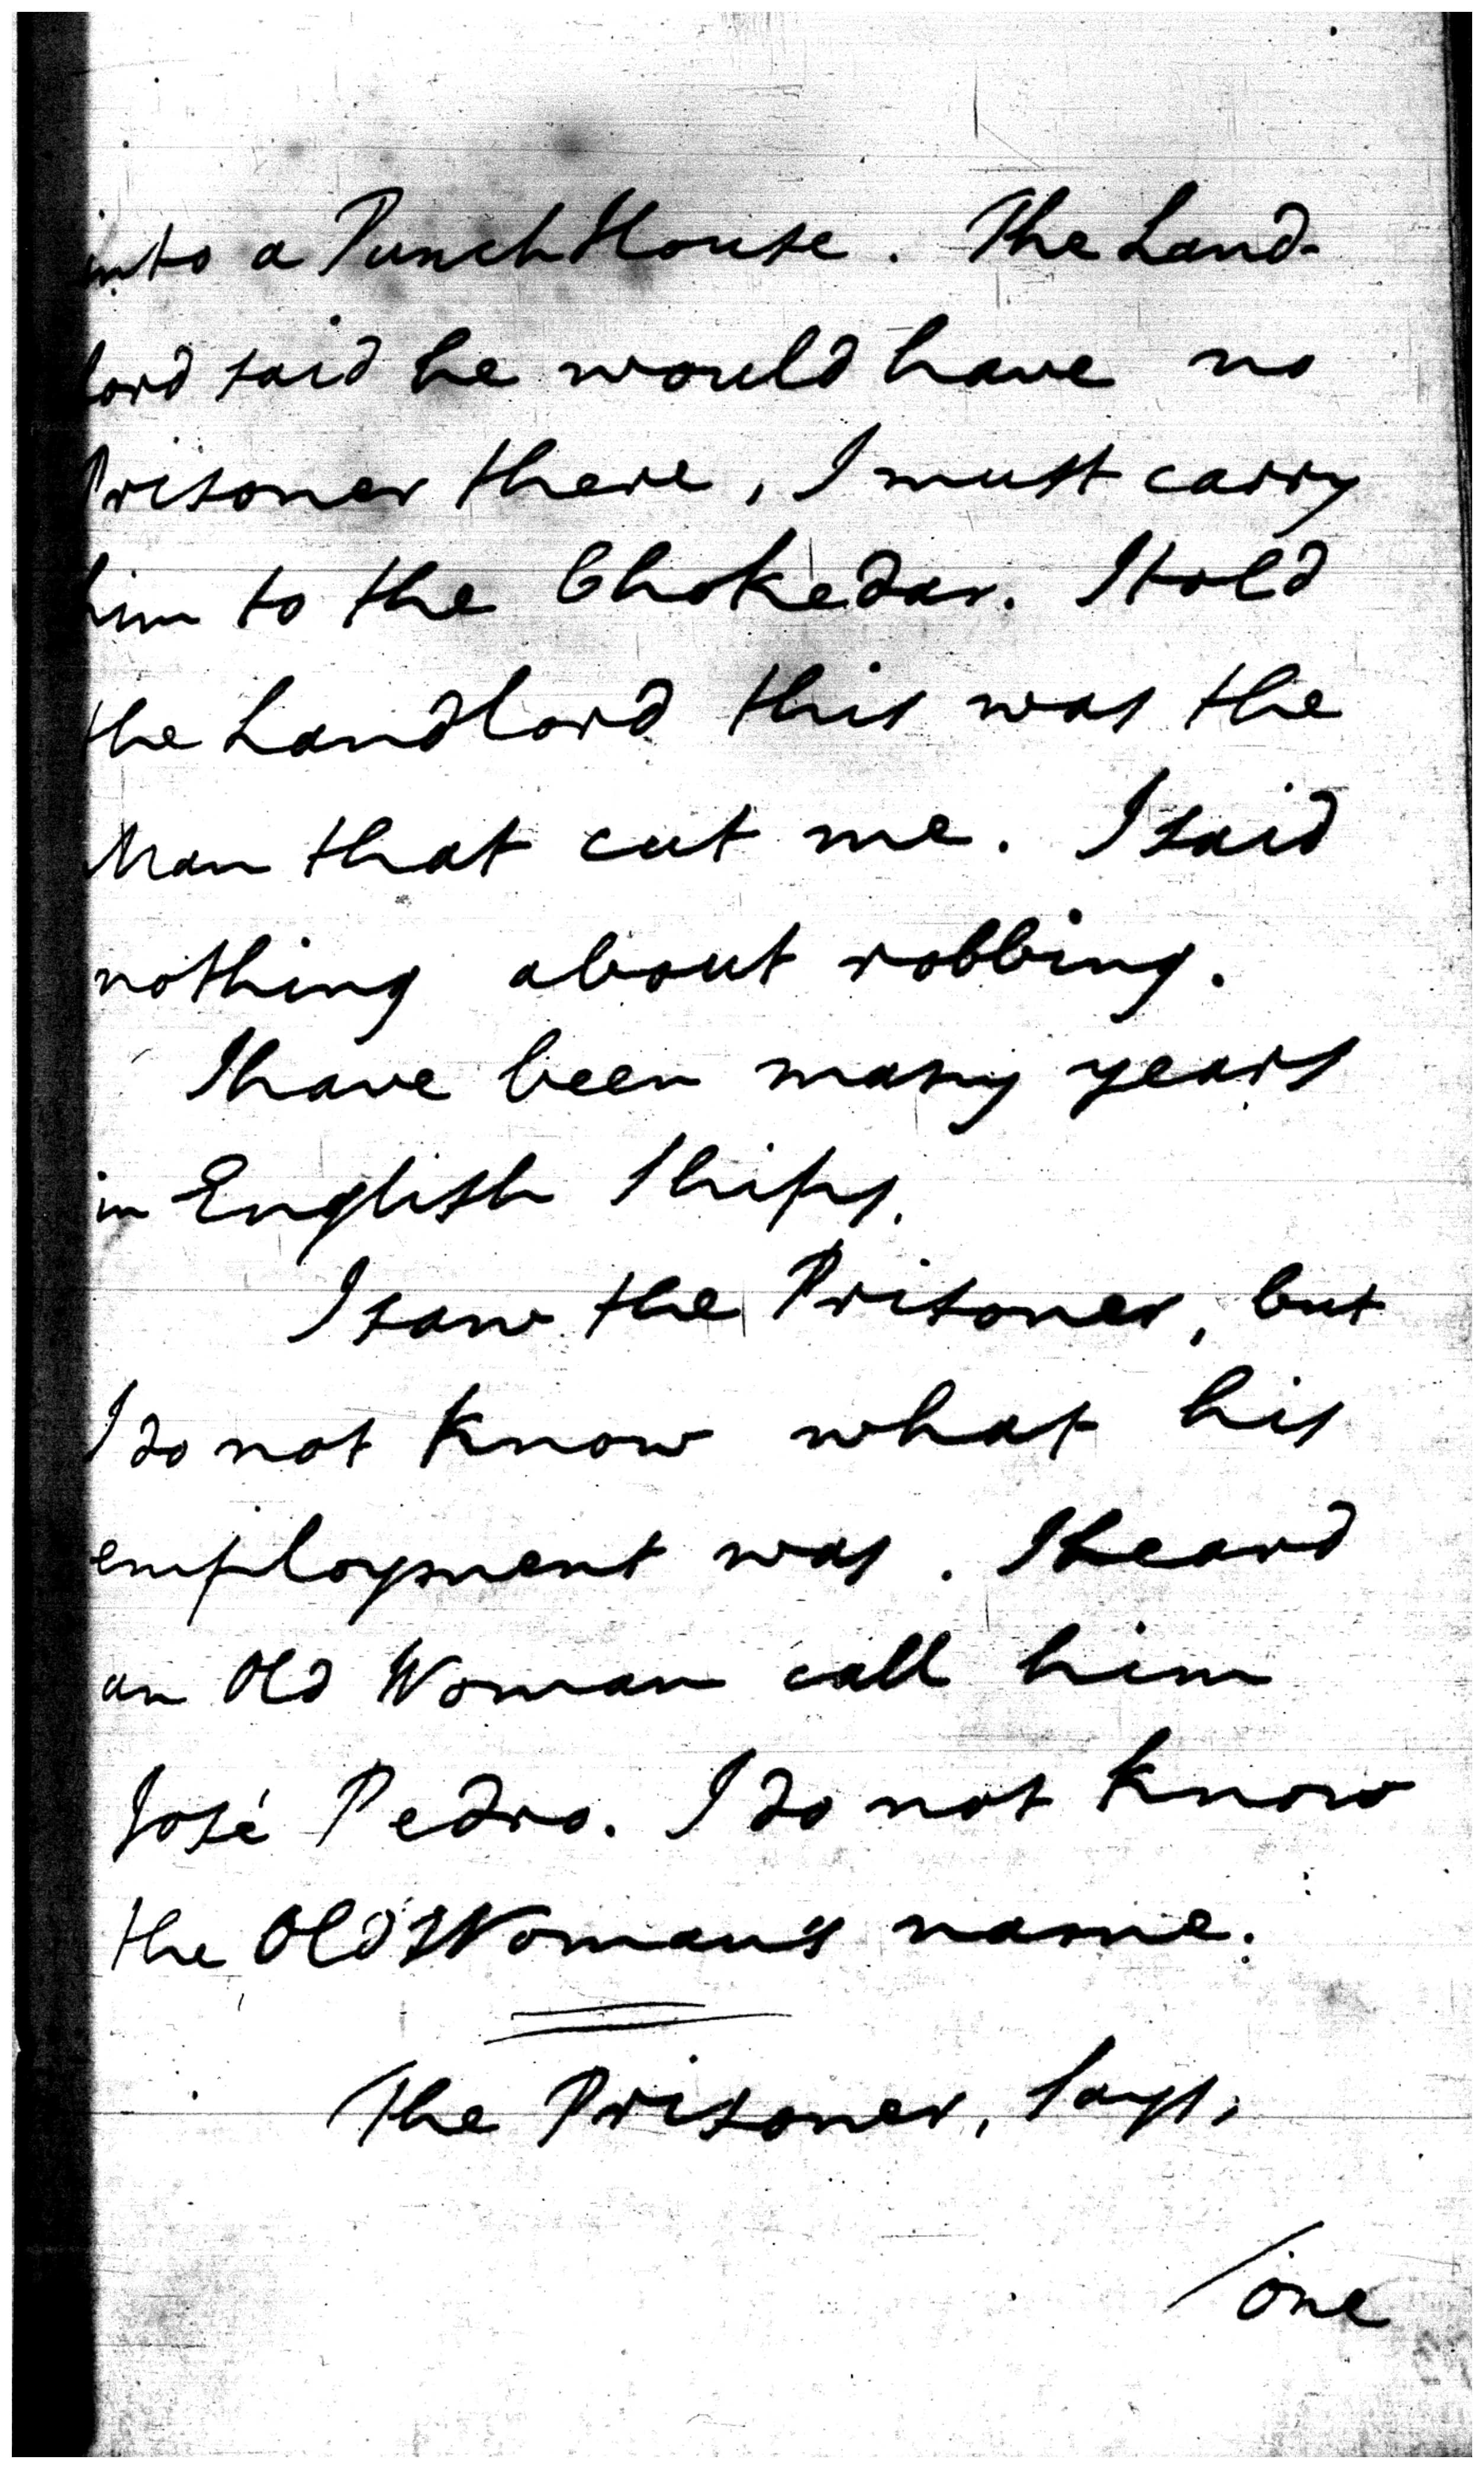 into a Punch House. The Land-
lord said he would have no
Prisoner there, I must carry
him to the Chokedar. I told
the Landlord this was the
Man that cut me. I said
nothing about robbing.
I have been many years
in English Ships.
I saw the Prisoner, but
I do not know what his
employment was. I heard
an Old Woman call him
José Pedro. I do not know
the Old Woman's name.
The Prisoner, says,
/one